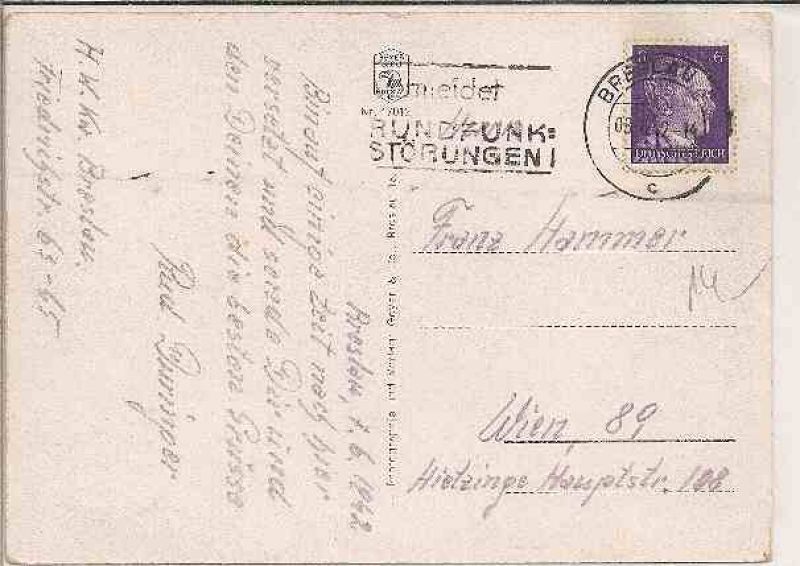 Breslau, 7.6.1942
Bin auf einige Zeit nach hier
versetzt und sende Dir und
den Deinen die besten Grüsse
Rud
H. V. Kr. Breslau.
Friedrichstr. 63-65
Nr. 17012
meldet
RUNDFUNK=
STÖRUNGEN!
BRESLAU
c
6
DEUTSCHES REICH
Herrn
Franz Hammer
Wien, 89
Hietzinger Hauptstr. 188